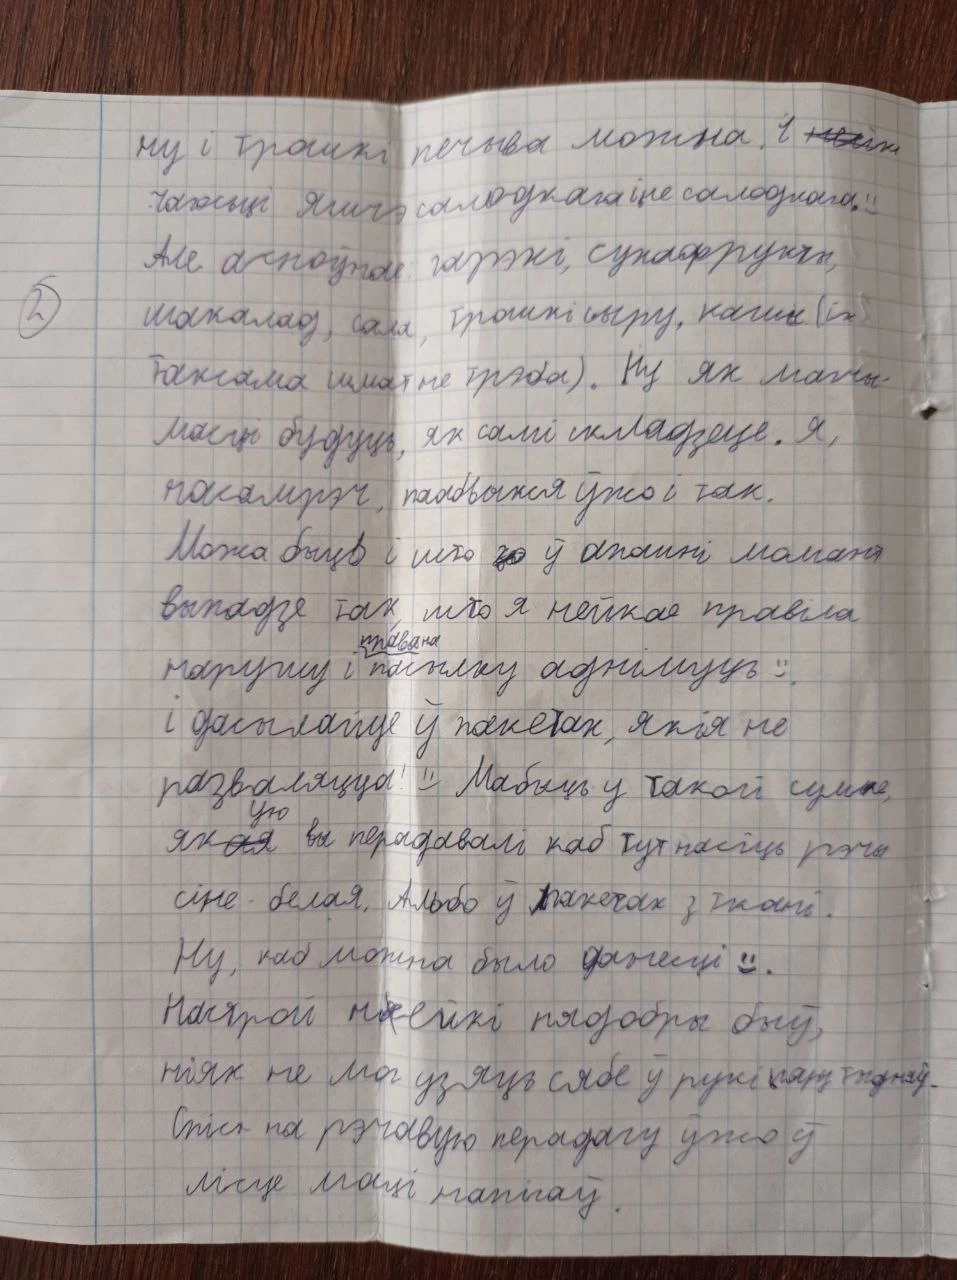 ну і трошкі печыва можна. І
часьці яшчэ салодкага і не салодкага. :)
Але асноўнае: гарэхі, сухафрукты,
2
шакалад, сала, трошкі сыру, кашы (іх
таксама шмат не трэба). Ну як магчы-
масць будуць, як самі складзеце. Я,
насамрэч, паабвыкся ўжо і так.
Можа быць і што ў апошні момант
выпадзе так, што я нейкае правіла
парушу і права на пасылку аднімуць :).
і дасылайце ў пакетах, якія не
разваляцца! :) Мабыць у такой сумке,
якую вы перадавалі каб тут насіць рэчы
сіне-белая. Альбо ў пакетах з ткані.
Ну, каб можна было данесці :).
Настрой нейкі нядобры быў,
ніяк не мог узяць сябе ў рукі пару тыдняў.
Спіс на рэчавую перадачу ўжо ў
лісце маці напісаў.